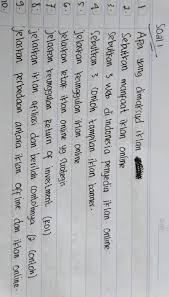 Soal 1
1. Apa yang dimaksud iklan
2. Sebutkan manfaat iklan online
3. Sebutkan 3 web di indonesia penyedia iklan online
4. Sebutkan 3 contoh tampilan iklan banner.
5. Jelaskan keunggulan iklan online
6. Jelaskan letak iklan online yg
7. Jelaskan keunggulan Return of investment (ROI)
8. Jelaskan iklan afiliasi dan berilah contohnya (2 contoh)
9. Jelaskan perbedaan antara iklan offline dan iklan online.
10.